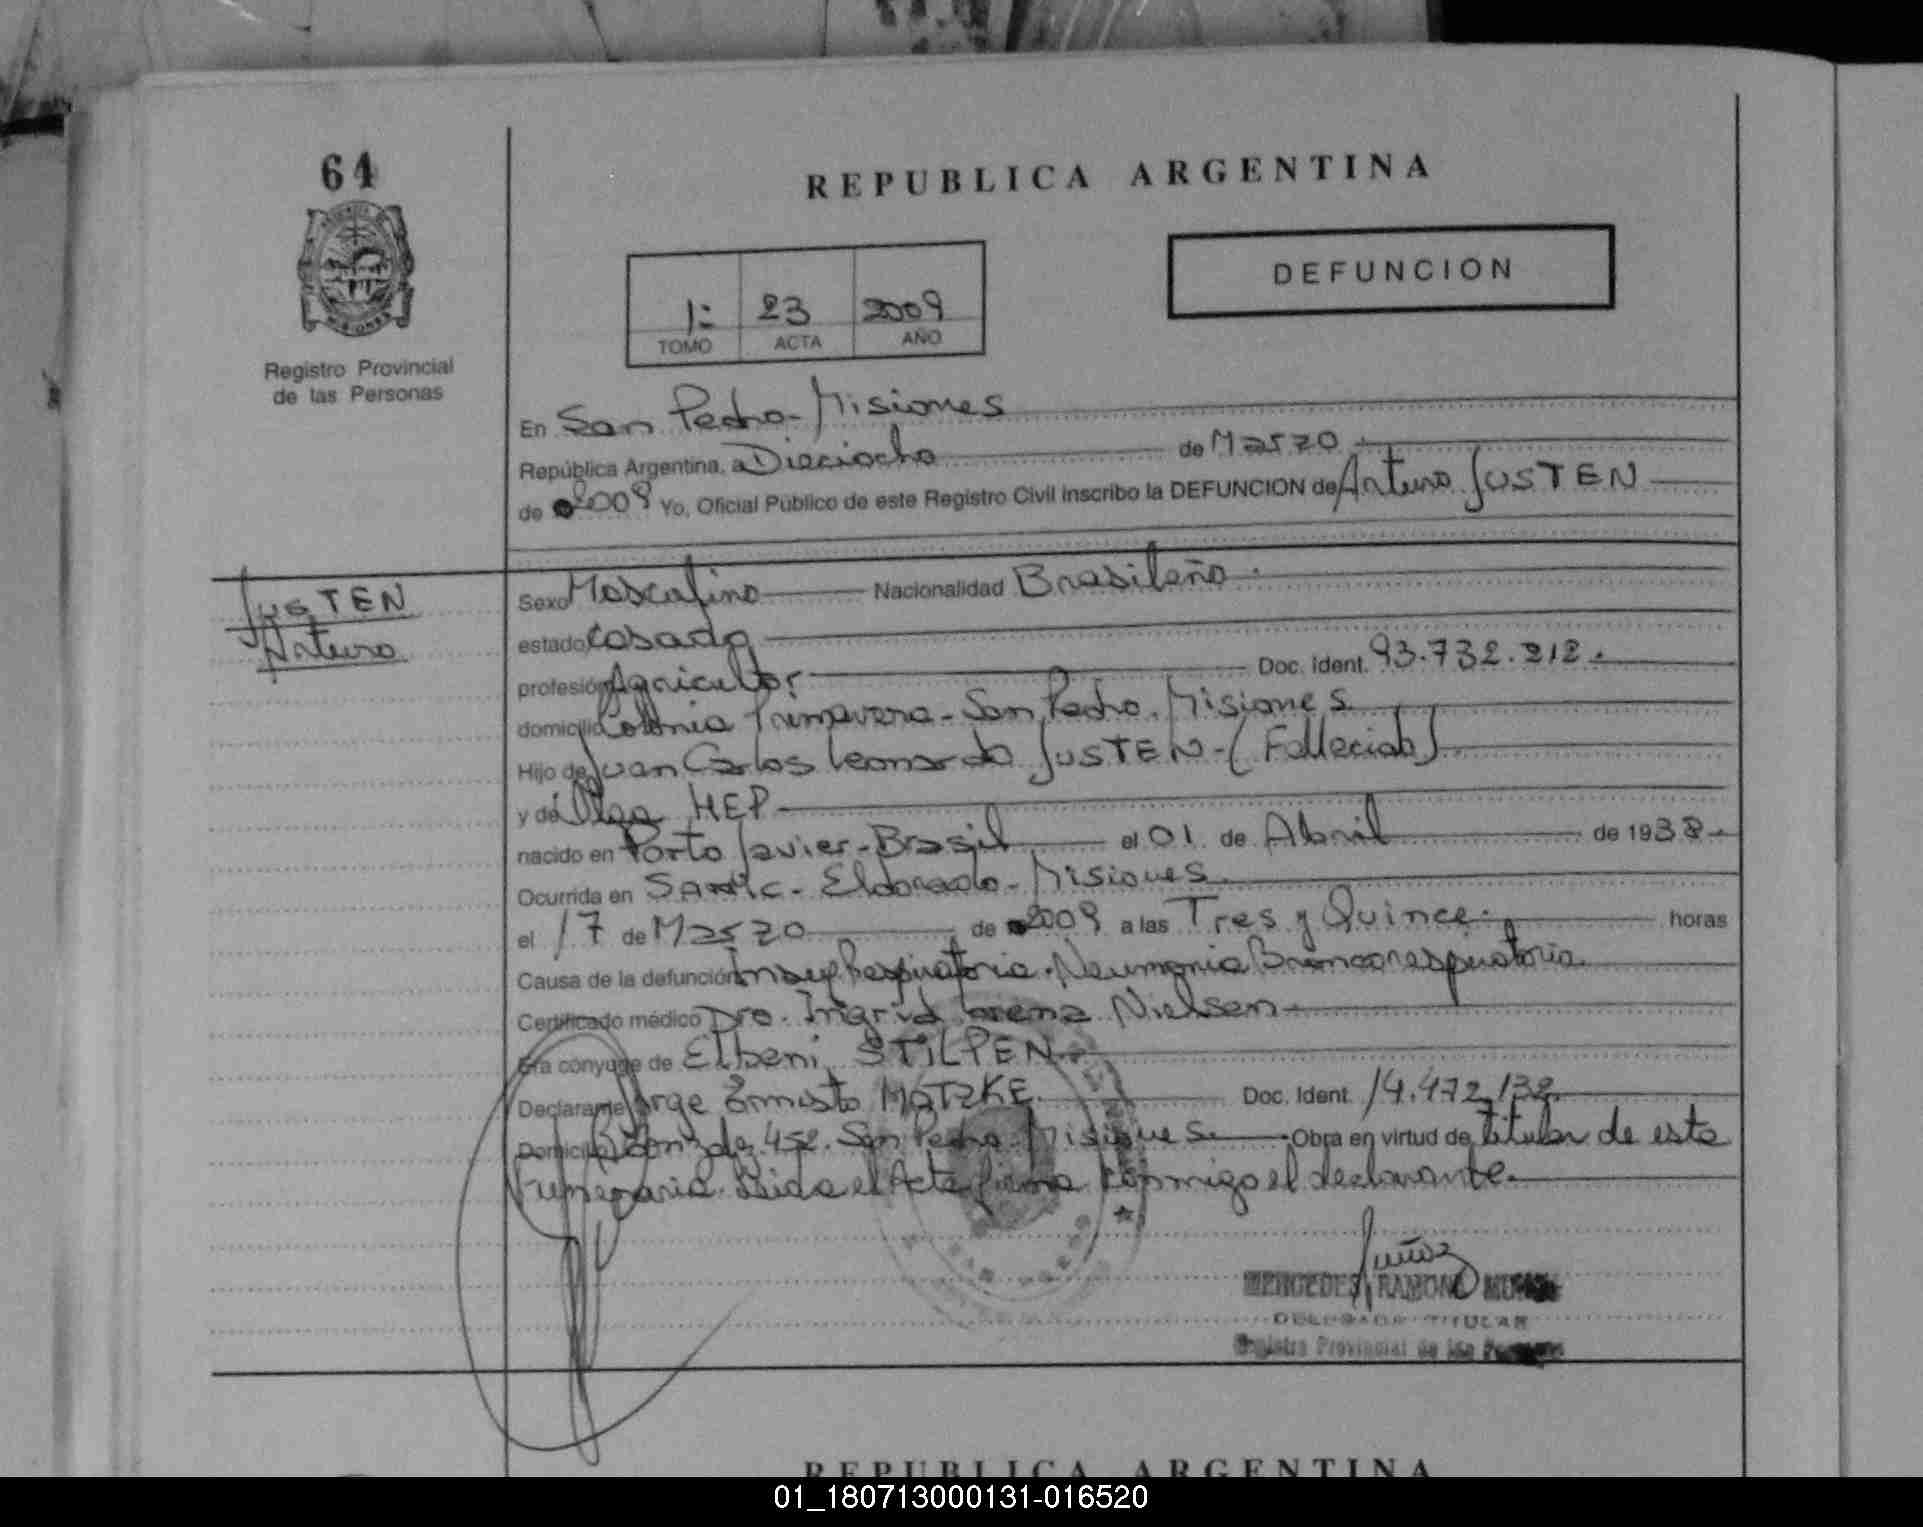 64
REPUBLICA ARGENTINA
DEFUNCION
1: 23 2009
TOMO ACTA AÑO
Registro Provincial
de las Personas
En San Pedro - Misiones
República Argentina, a Dieciocho de Marzo
de 2009 Yo, Oficial Público de este Registro Civil inscribo la DEFUNCION de Arturo JUSTEN
JUSTEN
Arturo
Sexo Masculino Nacionalidad Brasileño
estado Casado
profesión Agricultor Doc. Ident. 93.732.212.
domicilio Colonia Primavera - San Pedro. Misiones
Hijo de Juan Carlos Leonardo JUSTEN - (Fallecido)
y de Olga HEP
nacido en Porto Javier - Brasil el 01 de Abril de 1938.
Ocurrida en SAMIC - Eldorado - Misiones
el 17 de Marzo de 2009 a las Tres y Quince. horas
Causa de la defunción Insuf Respiratoria. Neumonia Broncorespiratoria
Certificado médico Dra. Ingrid Lorena Nielsen
Era cónyuge de Elbeni STILPEN
Declarante Jorge Ernesto MATZKE. Doc. Ident. 14.472.132
Domicilio 452. San Pedro. Misiones. Obra en virtud de titular de esta
Funeraria. Leida el Acta firma conmigo el declarante.
MERCEDES RAMONA
DELEGADA TITULAR
Registro Provincial de las Personas
REPUBLICA ARGENTINA
01_180713000131-016520